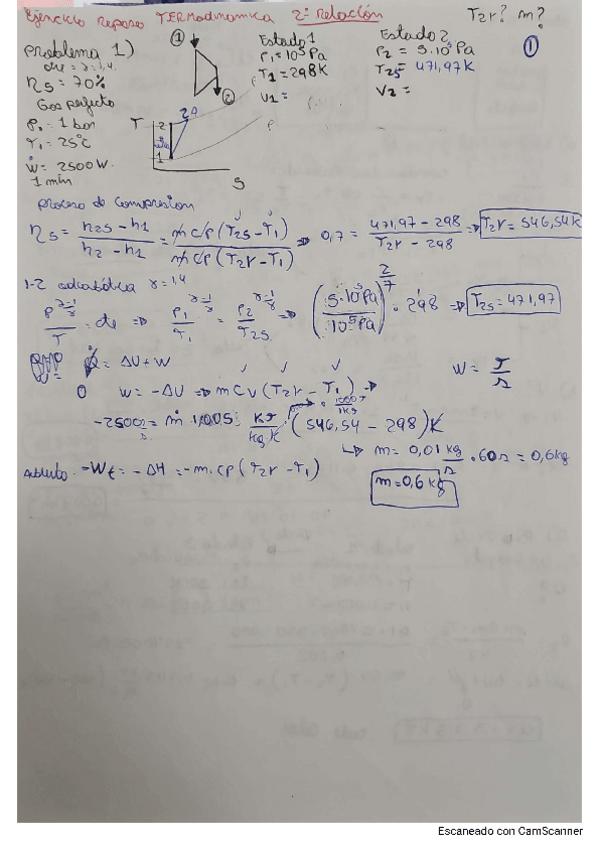 Ejercicio repaso TERmodinamica 2ª Relación
T2r? m?
problema 1)
cte = γ = 1,4
ηs = 70%
Gas perfecto
P1 = 1 bar
T1 = 25ºC
Ẇ = 2500 W
1 min
1
2
Estado 1
P1 = 10⁵ Pa
T1 = 298K
V1 =
Estado 2
P2 = 5·10⁵ Pa
T2s = 471,97 K
V2 =
①
T
2
1
S
proceso de compresion
ηs = (h2s - h1)/(h2 - h1) = ṁ cp (T2s - T1)/ṁ cp (T2r - T1) ⇒ 0,7 = (471,97 - 298)/(T2r - 298) ⇒ T2r = 546,54 K
1-2 adiabática γ = 1,4
P^((γ-1)/γ)/T = cte ⇒ P1^((γ-1)/γ)/T1 = P2^((γ-1)/γ)/T2s ⇒ (5·10⁵ Pa/10⁵ Pa)^(2/7) · 298 ⇒ T2s = 471,97
Q = ΔU + W
W = J/s
0 W = -ΔU ⇒ m Cv (T2r - T1) ⇒
-2500 J/s = ṁ 1,005 KJ/kg K · 1000J/1KJ · (546,54 - 298) K
↳ m = 0,01 kg/s · 60s = 0,6kg
Abierto -Wt = -ΔH = -m·cp (T2r - T1)
m = 0,6 kg
Escaneado con CamScanner